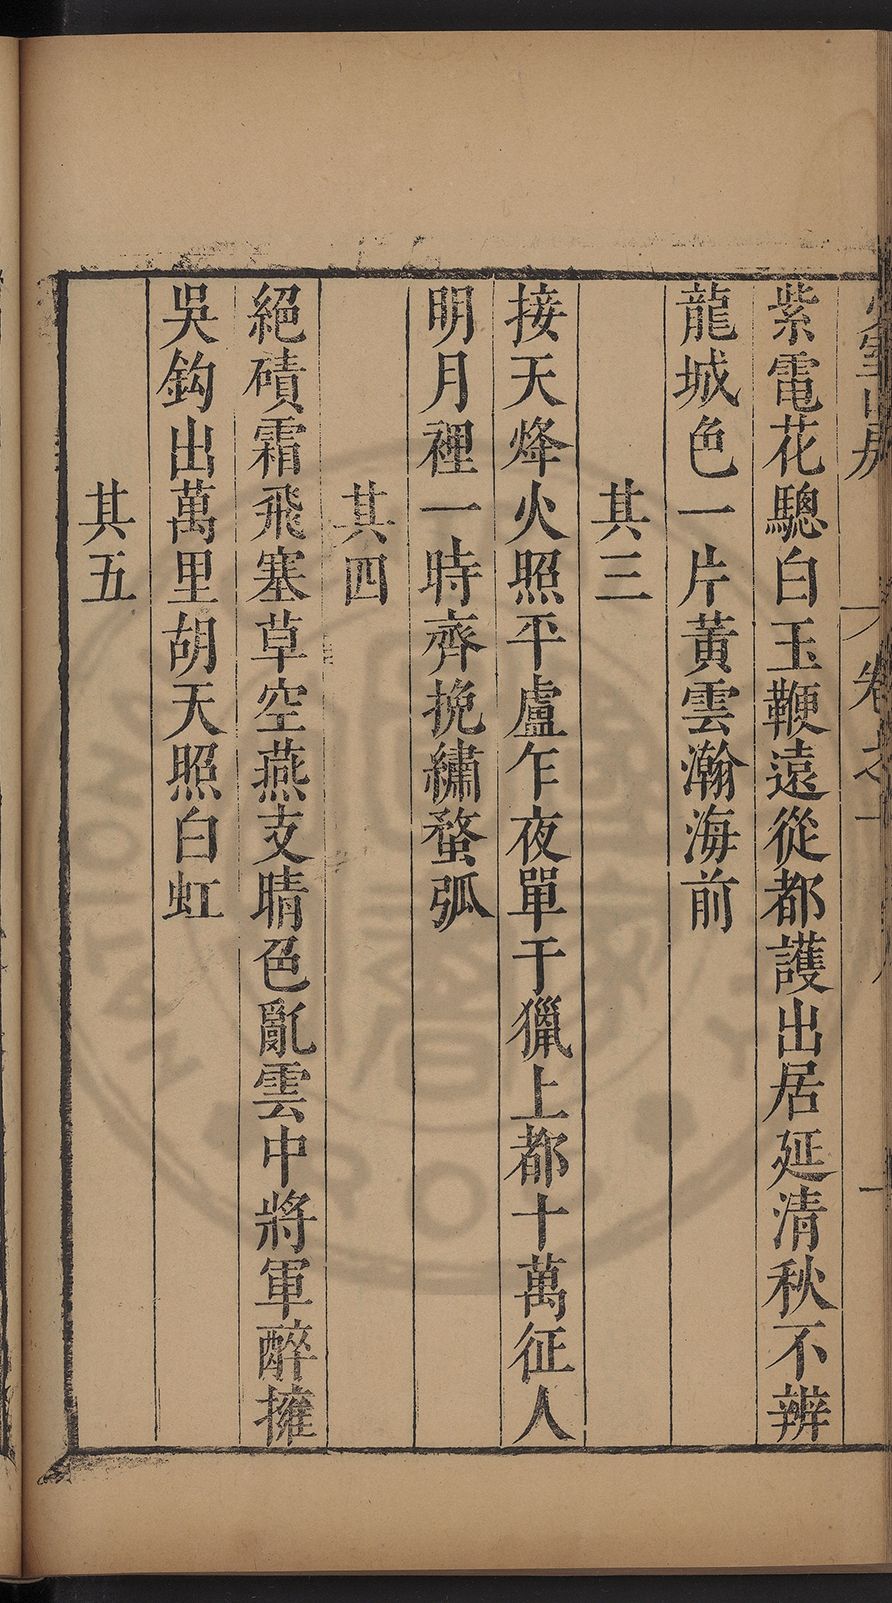 紫電花驄白玉鞭遠從都護出居延清秋不辨
龍城色一片黃雲瀚海前
其三
接天烽火照平盧乍夜單于獵上都十萬征人
明月裡一時齊挽繡蝥弧
其四
絕磧霜飛塞草空燕支晴色亂雲中將軍醉擁
吳鈎出萬里胡天照白虹
其五